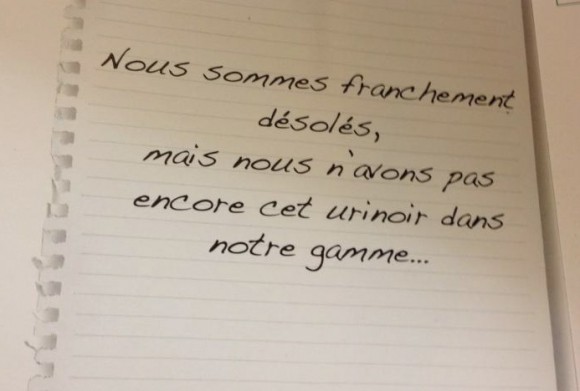 Nous sommes franchement
désolés,
mais nous n'avons pas
encore cet urinoir dans
notre gamme...